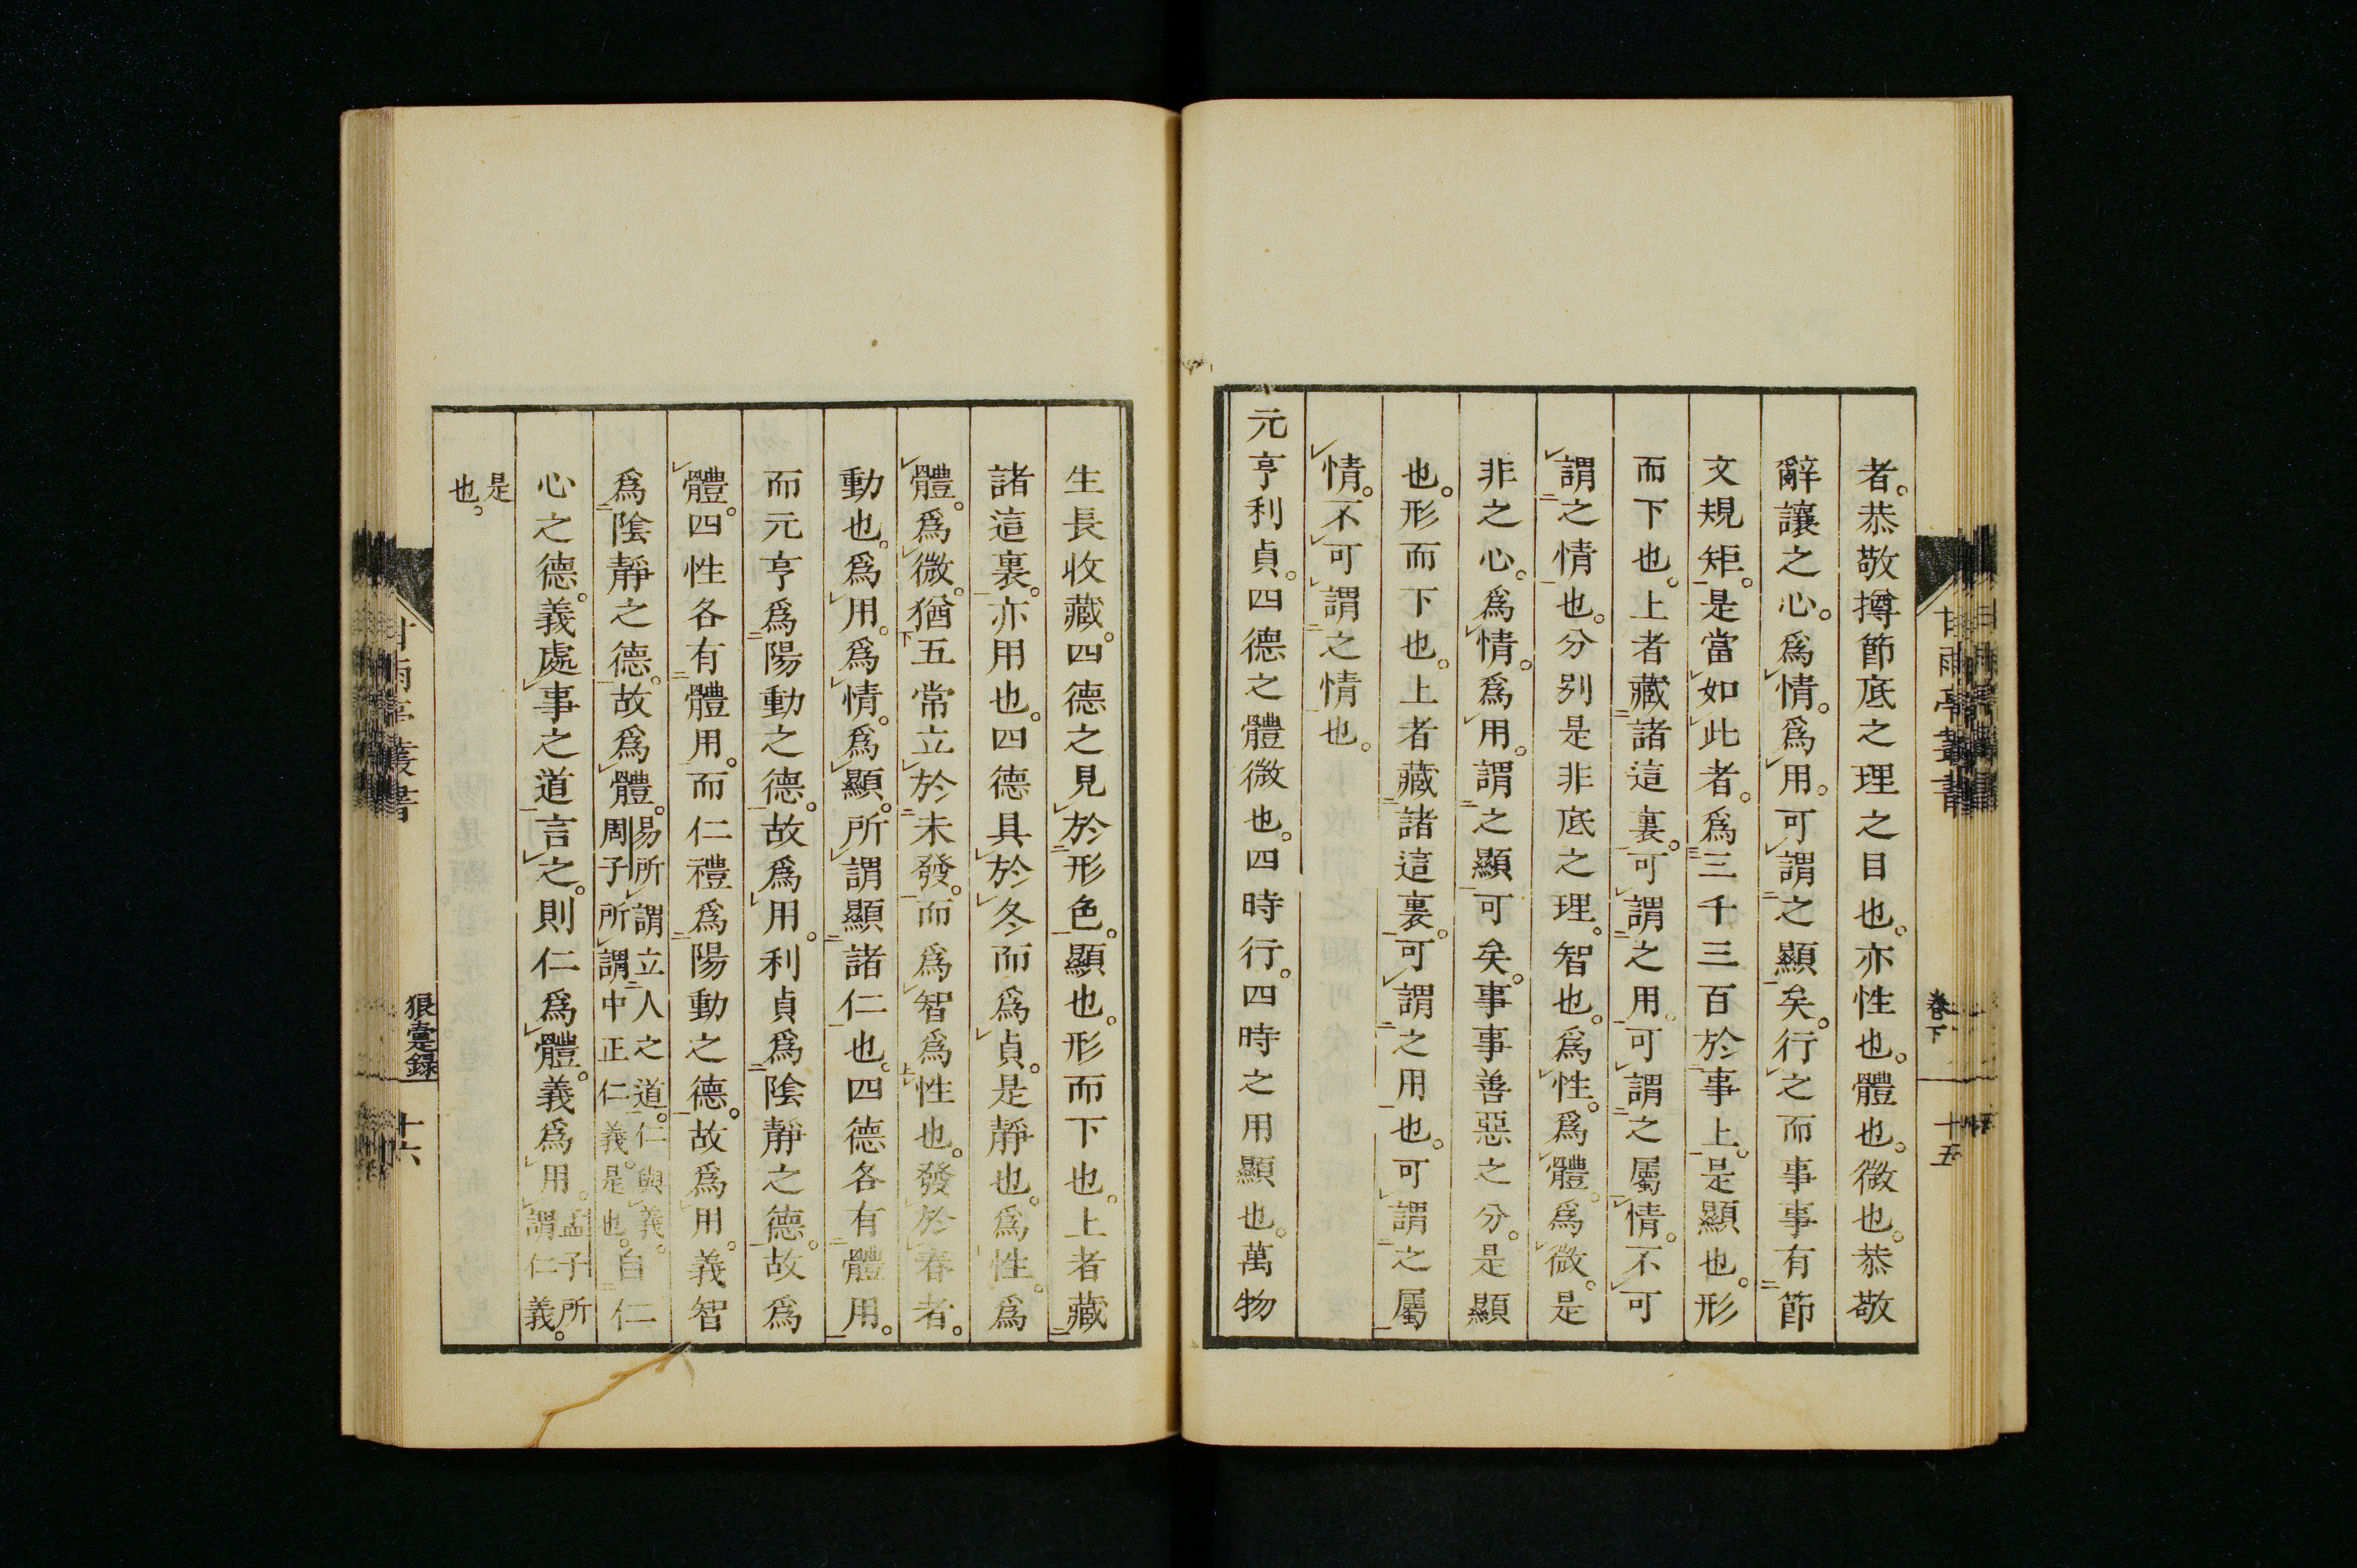 者。恭敬撙節底之理之目也。亦性也。體也。微也。恭敬
辭讓之心。爲情。爲用。可謂之顯矣。行之而事事有節
文規矩。是當如此者。爲三千三百於事上。是顯也。形
而下也。上者藏諸這裏。可謂之用。可謂之屬情。不可
謂之情也。分別是非底之理。智也。爲性。爲體。爲微。是
非之心。爲情。爲用。謂之顯可矣。事事善惡之分。是顯
也。形而下也。上者藏諸這裏。可謂之用也。可謂之屬
情。不可謂之情也。
元亨利貞。四德之體微也。四時行。四時之用顯也。萬物
甘雨亭叢書
卷下
十五
生長收藏。四德之見於形色。顯也。形而下也。上者藏
諸這裏。亦用也。四德具於冬而爲貞。是靜也。爲性。爲
體。爲微。猶五常立於未發。而爲智爲性也。發於春者。
動也。爲用。爲情。爲顯。所謂顯諸仁也。四德各有體用。
而元亨爲陽動之德。故爲用。利貞爲陰靜之德。故爲
體。四性各有體用。而仁禮爲陽動之德。故爲用。義智
爲陰靜之德。故爲體。易所謂立人之道。仁與義。周子所謂中正仁義。是也。自仁
心之德。義處事之道言之。則仁爲體。義爲用。孟子所謂仁義。
是也。
甘雨亭叢書
狼疐録
十六